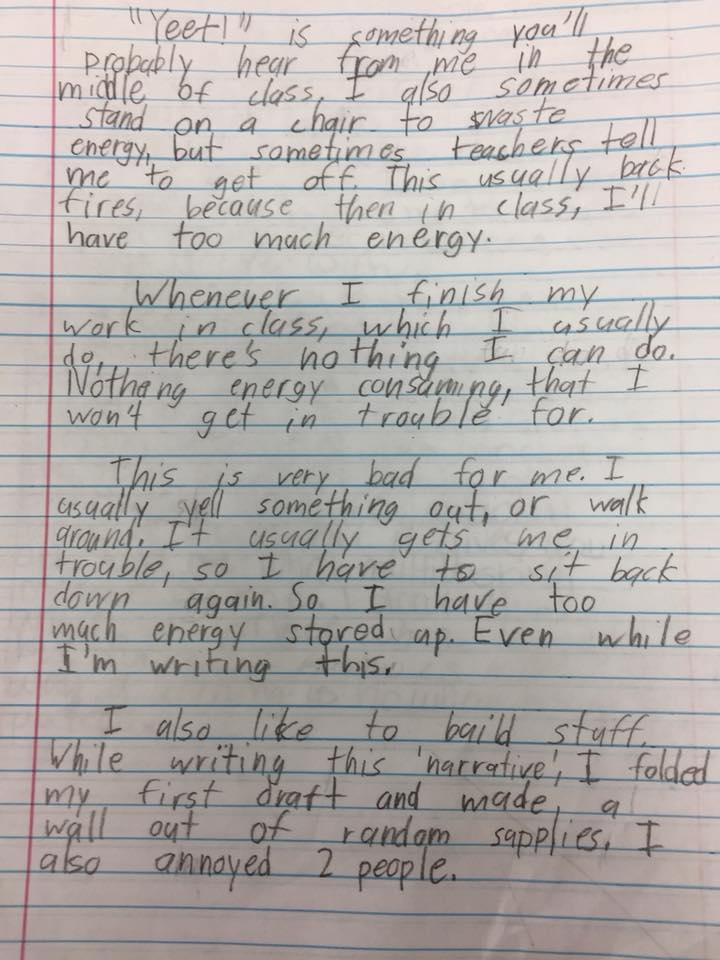 "Yeet!" is something you'll
probably hear from me in the
middle of class. I also sometimes
stand on a chair to waste
energy, but sometimes teachers tell
me to get off. This usually back
fires, because then in class, I'll
have too much energy.
Whenever I finish my
work in class, which I usually
do, there's nothing I can do.
Nothing energy consuming, that I
won't get in trouble for.
This is very bad for me. I
usually yell something out, or walk
around. It usually gets me in
trouble, so I have to sit back
down again. So I have too
much energy stored up. Even while
I'm writing this.
I also like to build stuff.
While writing this 'narrative', I folded
my first draft and made a
wall out of random supplies. I
also annoyed 2 people.